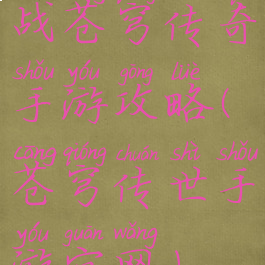 战苍穹传奇
shǒu yóu gōng lüè
手游攻略(
cāng qióng chuán shì shǒu
苍穹传世手
yóu guān wǎng
游官网)